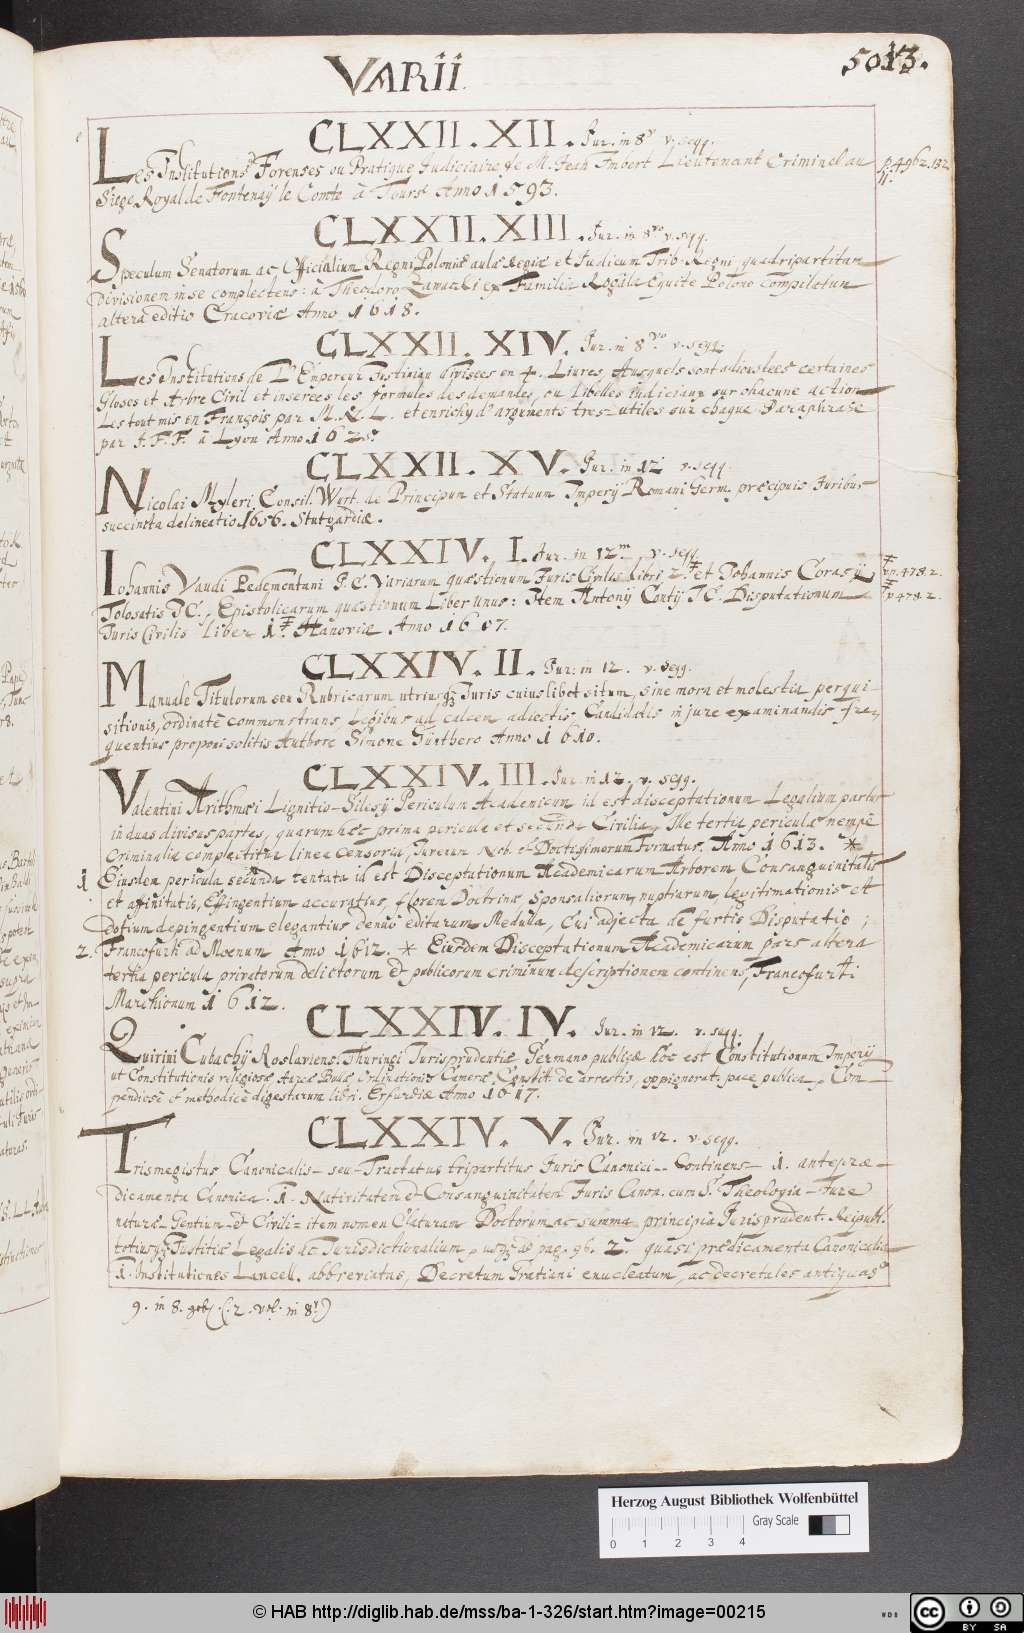 VARII.
5013.
CLXXII. XII. Jur. in 8º v. seqq.
Les Institutions Forenses ou Pratique Judiciaire de M. Jean Imbert Lieutenant Criminel au
Siege Royal de Fontenay le Comte à Tours Anno 1593.
p. 4962. 132
11.
CLXXII. XIII. Jur. in 8vo v. seqq.
Speculum Senatorum ac Officialium Regni Poloniæ aulæ Regiæ et Judicum Trib. Regni quadripartitam
Divisionem in se complectens: à Theodoro Zawacki ex Familia Rogala Equite Polono Compilatum
altera editio Cracoviæ Anno 1618.
CLXXII. XIV. Jur. in 8vo. v. seqq.
Les Institutions de L'Empereur Justinian divisees en 4. Liures, Ausquels sont adioustees certaines
Gloses et Arbre Civil et inserees les formules des demandes, ou libelles iudiciaux sur chacune action
Les tout mis en François par M. N. L. et enrichy d'arguments tres-utiles sur chaque Paraphrase
par J. F. F. à Lyon Anno 162
CLXXII. XV. Jur. in 12 v. seqq.
Nicolai Myleri Consil. Wirt. de Principum et Statuum Imperij Romani Germ. præcipuis Juribus
succincta delineatio 1656. Stutgardiæ.
CLXXIV. I. Jur. in 12m v. seqq.
Iohannis Vaudi Pedemontani J. C. Variarum quæstionum Juris Civilis Libri 2 et Johannis Corasij
Tolosatis JC. Epistolicarum quæstionum Liber Unus: Item Antonij Contij JC. Disputationum
Juris Civilis Liber 1. Hanoviæ Anno 1607.
p. 478. 2.
p 478. 2.
CLXXIV. II. Jur: in 12. v. seqq.
Manuale Titulorum seu Rubricarum utriusq; Juris cuiuslibet situm, sine mora et molestia perqui-
sitionis, ordinatè commonstrans, Legibus ad calcem adiectis, Candidatis in jure examinandis fre-
quentius proponi solitis Authore Simone Günthero Anno 1610.
CLXXIV. III. Jur. in 12. v. seqq.
Valentini Arithmæi Lignitio-Silesij Periculum Academicum id est disceptationum Legalium partus
in duas divisus partes, quarum hæc prima pericula et secunda Civilia, Ille tertia pericula nempè
Criminalia complectitur linea censoria, Juvenum Nob. et Doctissimorum Formatus. Anno 1613. *
1 Eiusdem pericula secunda tentata id est Disceptationum Academicarum Arborem Consanguinitatis
et affinitatis, Effingentium accuratius, florem Doctrinæ Sponsaliorum, nuptiarum, legitimationis et
dotium depingentium elegantius denuò editarum Medulla, Cui adjecta de furtis Disputatio;
2. Francofurti ad Moenum Anno 1612. * Eiusdem Disceptationum Academicarum pars altera
tertia pericula privatorum delictorum et publicorum criminum descriptionem continens, Francofurti
Marchionum 1612.
CLXXIV. IV. Jur. in 12. v. seqq.
Quirini Cubachij Roslaviens. Thuringi Jurisprudentiæ Germano publicæ hoc est Constitutionum Imperij
ut Constitutionis religiosæ Aureæ Bullæ Ordinationis Cameræ, Constit. de arrestis, oppignorat. pace publica, Com-
pendiosè et methodicè digestarum libri. Erfurdiæ Anno 1617.
CLXXIV. V. Jur. in 12. v. seqq.
Trismegistus Canonicalis seu Tractatus tripartitus Juris Canonici Continens 1. antepræ-
dicamenta Canonica: 1. Nativitatem et Consanguinitatem Juris Canon. cum S. Theologia Jure
naturæ Gentium et Civili = item nomen Claturam Doctorum ac summa principia Jurisprudent. Reipubl.
totiusq; Justitiæ Legalis ac Jurisdictionalium, usq; ad pag. 96. 2. quasi prædicamenta Canonicalia
1. Institutiones Lancell. abbreviatas, Decretum Gratiani enucleatum, ac decretales antiquas
9. in 8. geb. (: 2. vol. in 8º)
Herzog August Bibliothek Wolfenbüttel
Gray Scale
0 1 2 3 4
© HAB http://diglib.hab.de/mss/ba-1-326/start.htm?image=00215
WDB
cc BY SA